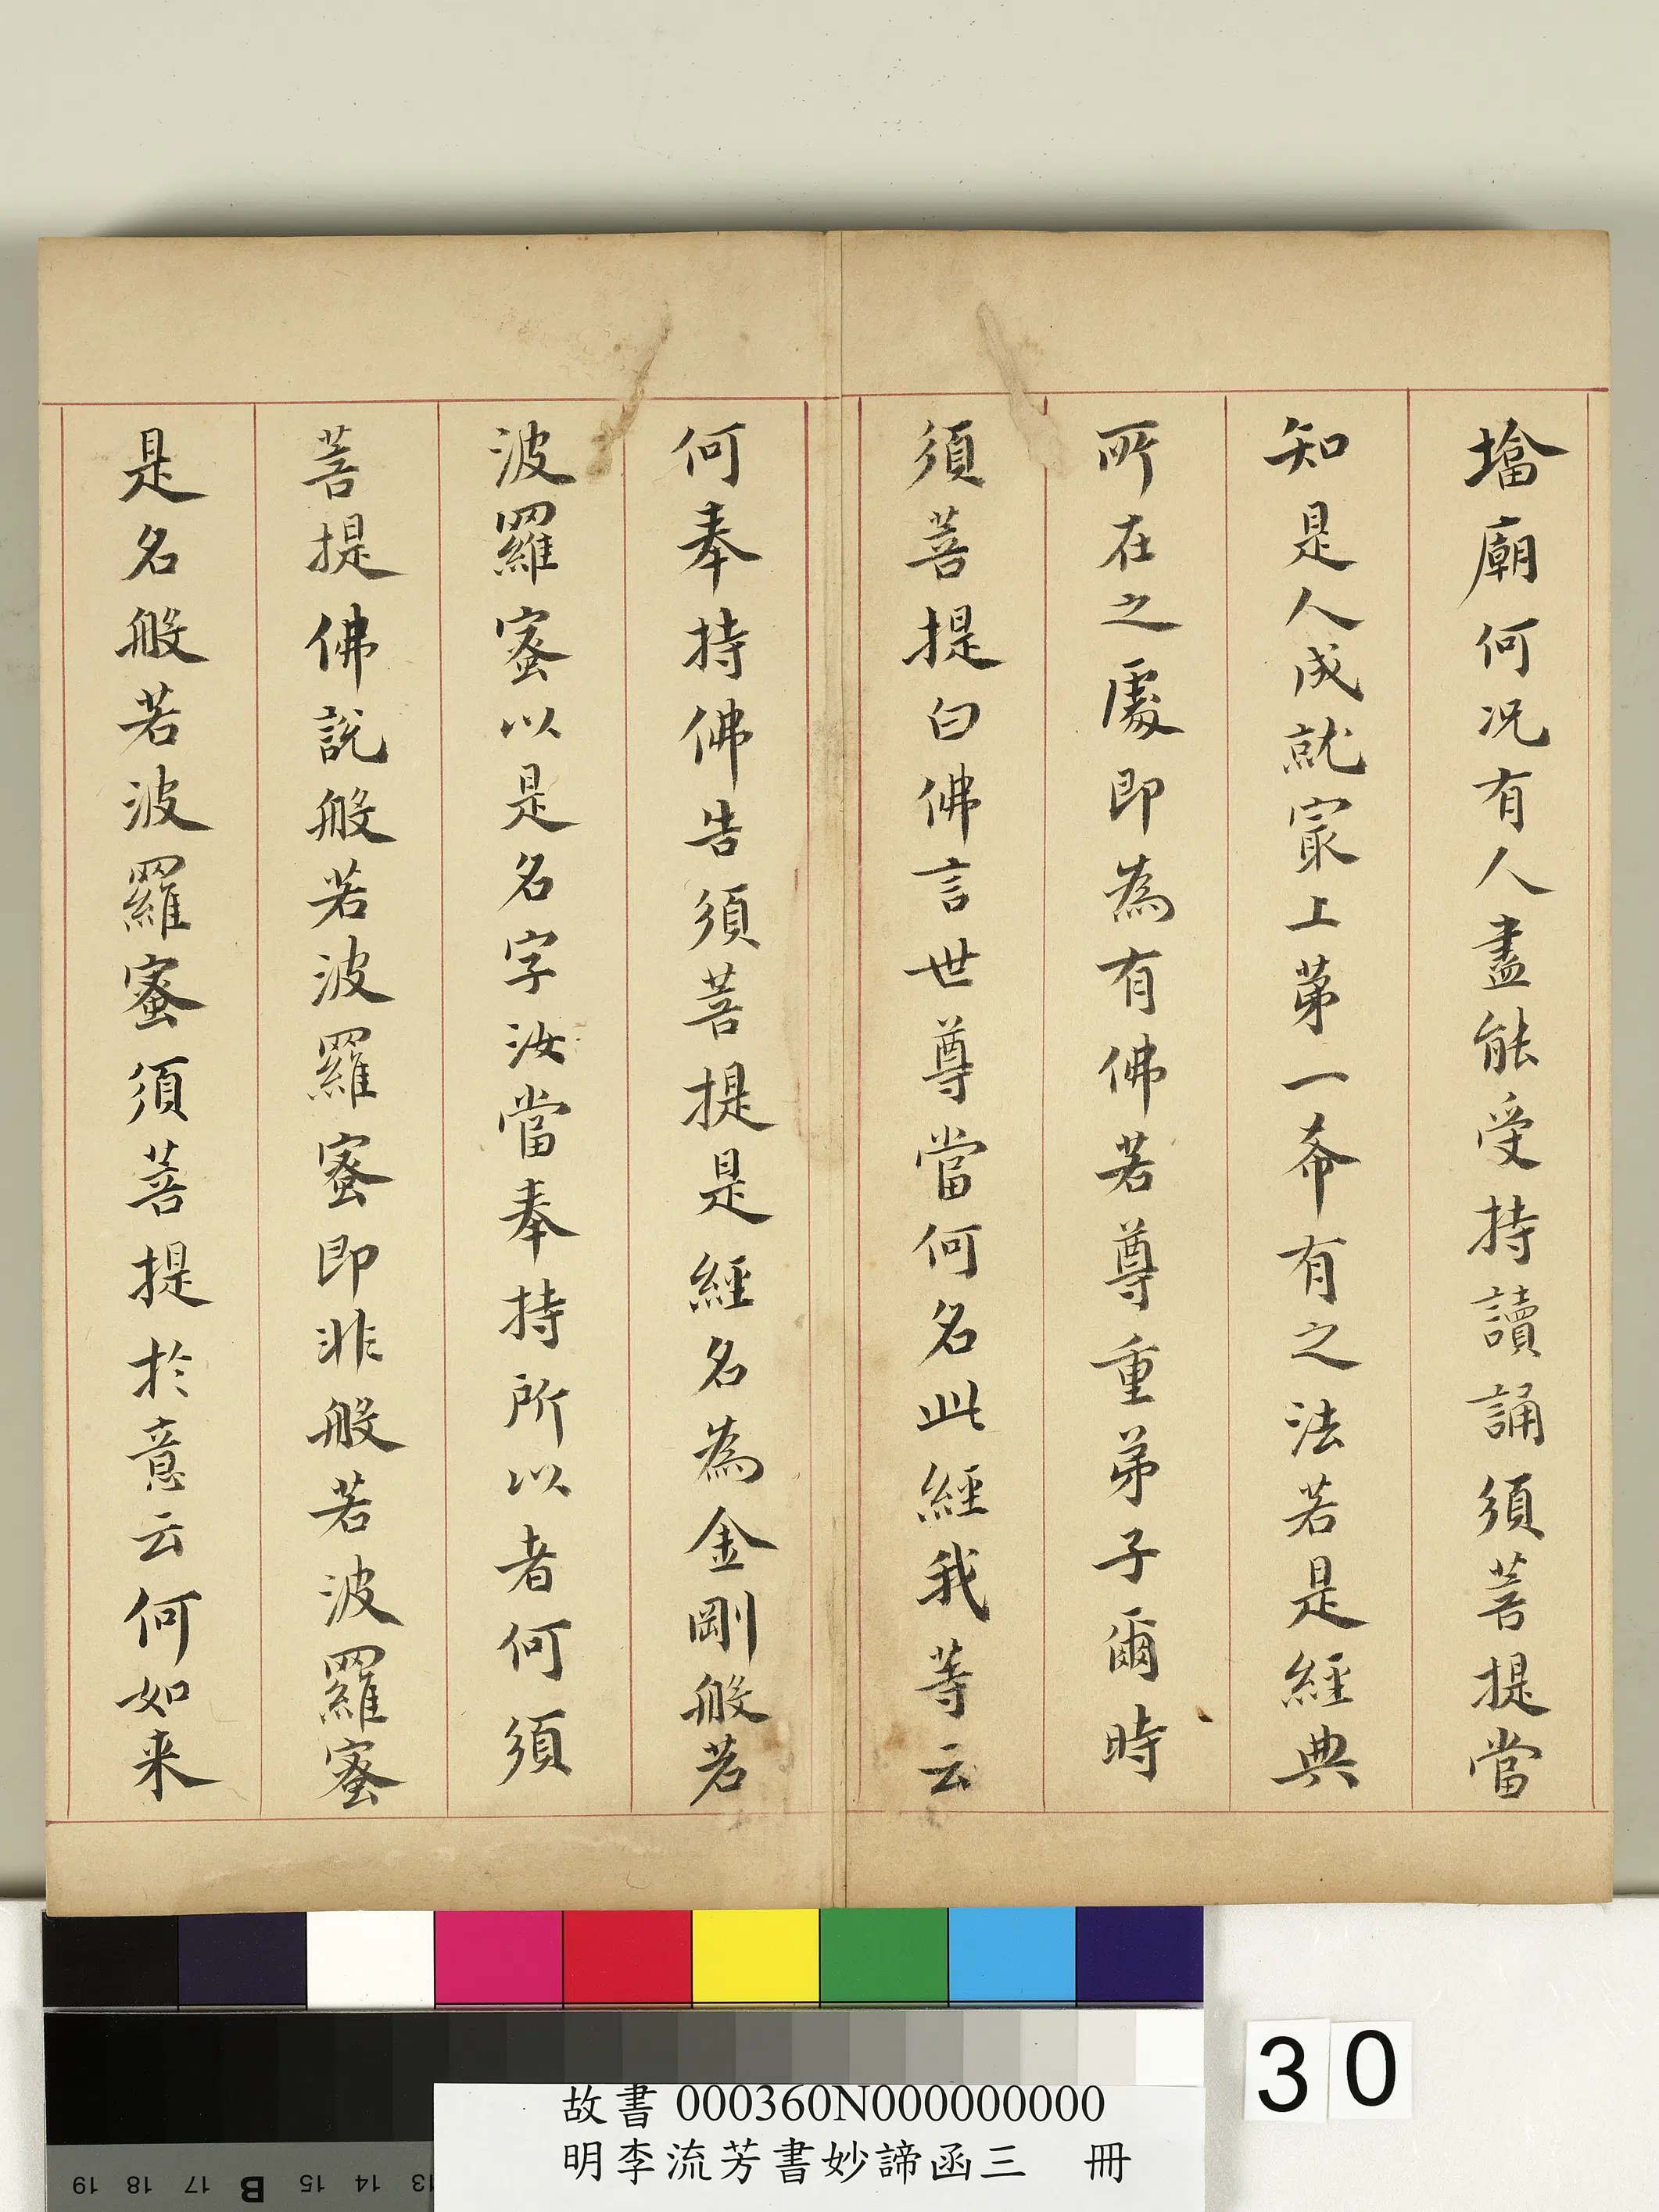 墖廟何况有人盡能受持讀誦須菩提當
知是人成就冣上苐一希有之法若是經典
所在之處即為有佛若尊重弟子爾時
須菩提白佛言世尊當何名此經我等云
何奉持佛告須菩提是經名為金剛般若
波羅蜜以是名字汝當奉持所以者何須
菩提佛說般若波羅蜜即非般若波羅蜜
是名般若波羅蜜須菩提於意云何如来
30
故書 000360N000000000
明李流芳書妙諦函三 冊
19 18 17 B 15 14 13